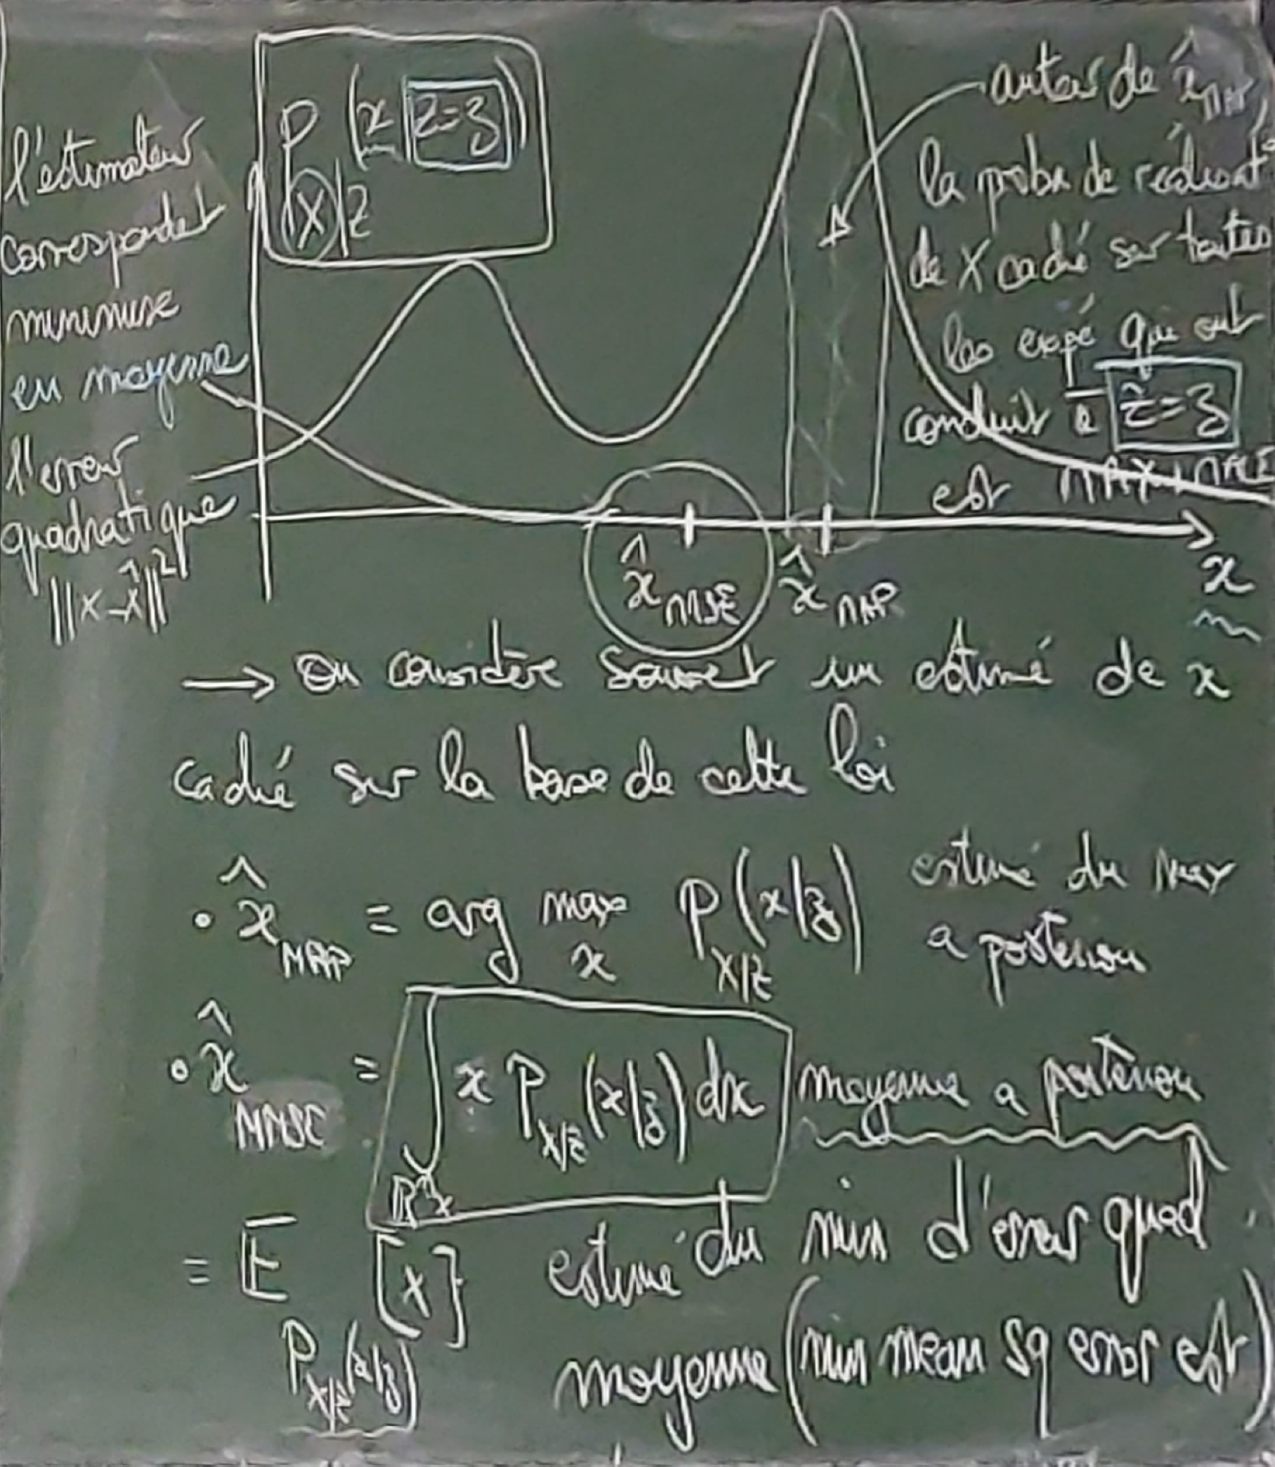 l'estimateur
correspondant
minimise
en moyenne
l'erreur
quadratique
||x-x̂||²
P_{X|Z} (x | Z=z)
autour de x̂_MAP,
la proba de
de X caché sur toutes
les expé qui ont
conduit à Z=z
est MAXIMALE
x̂_MSE
x̂_MAP
x
→ On considère souvent un estimé de x
caché sur la base de cette loi
• x̂_MAP = arg max_x P_{X/Z}(x/z) estimé du max
a posteriori
• x̂_MMSE = ∫_{ℝ^{n_x}} x P_{X/Z}(x/z) dx moyenne a posteriori
= E_{P_{X/Z}(x/z)} [x] estimé du min d'erreur quad.
moyenne (min mean sq error est)